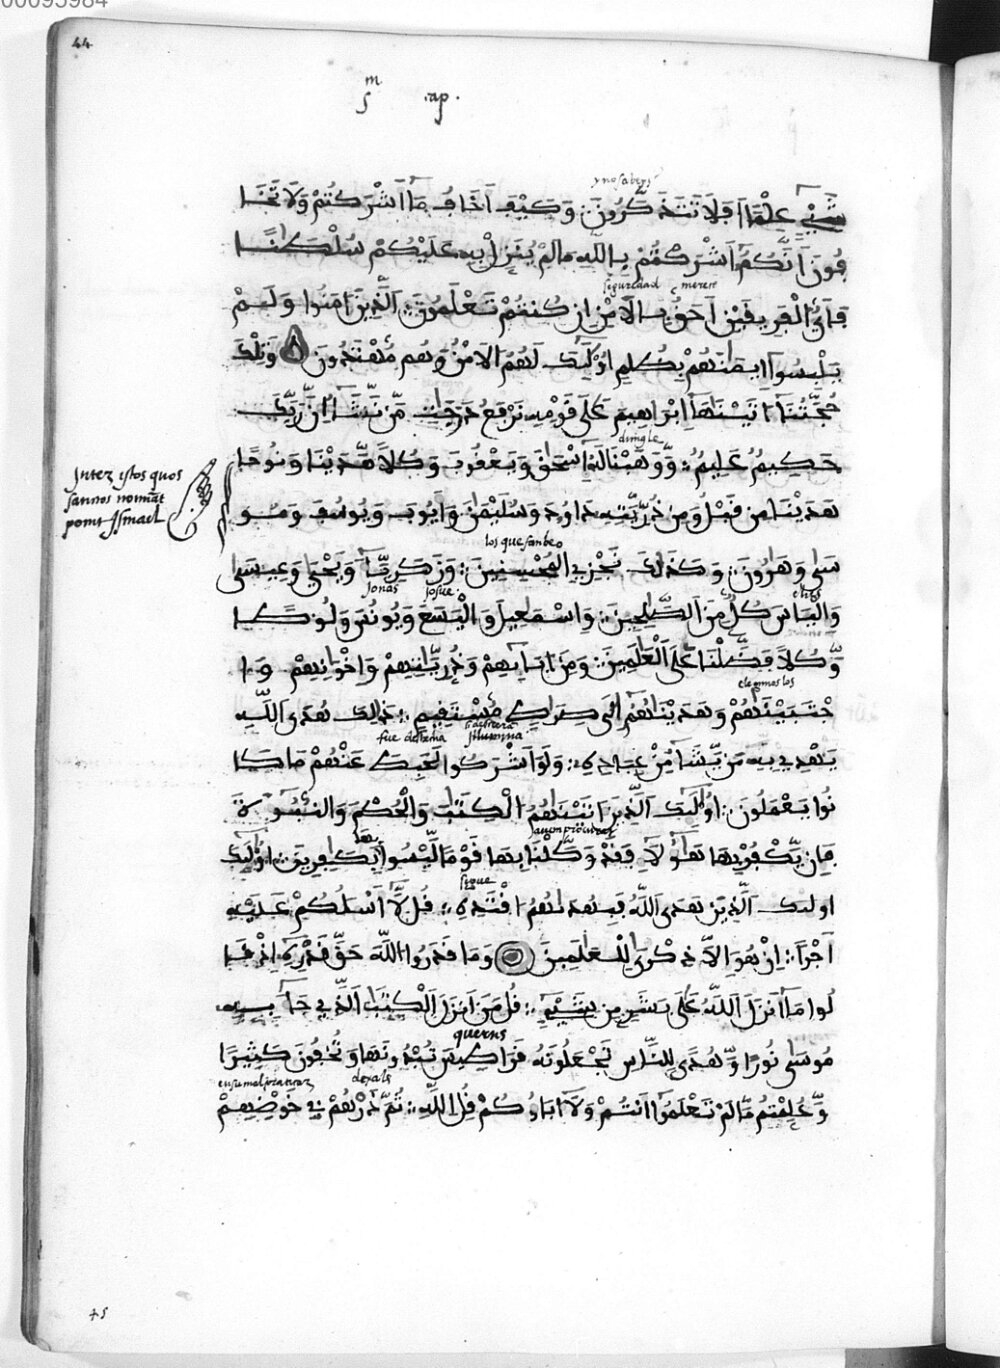 00095984
44
m
s .ap.
y no saber
شَيْءٍ عِلْمًا اَفَلَا تَتَذَكَّرُونَ وَكَيْفَ اَخَافُ مَا اَشْرَكْتُمْ وَلَا تَخَا
فُونَ اَنَّكُمْ اَشْرَكْتُمْ بِاللَّهِ مَا لَمْ يُنَزِّلْ بِهِ عَلَيْكُمْ سُلْطَانًا
seguredad merese
فَأَيُّ الْفَرِيقَيْنِ اَحَقُّ بِالْاَمْنِ اِن كُنتُمْ تَعْلَمُونَ اَلَّذِينَ اٰمَنُوا وَلَمْ
يَلْبِسُوا اِيمَانَهُمْ بِظُلْمٍ اُوْلَٰئِكَ لَهُمُ الْاَمْنُ وَهُم مُّهْتَدُونَ وَتِلْكَ
حُجَّتُنَا اٰتَيْنَاهَا اِبْرَاهِيمَ عَلَى قَوْمِهِ نَرْفَعُ دَرَجَاتِ مَّن نَّشَاءُ اِنَّ رَبَّكَ
dimosle
حَكِيمٌ عَلِيمٌ وَوَهَبْنَا لَهُ اِسْحَاقَ وَيَعْقُوبَ وَكُلًّا هَدَيْنَا وَنُوحًا
Intez estos quos
sannos nomāt
ponit Ismael
هَدَيْنَا مِن قَبْلُ وَمِن ذُرِّيَّتِهِ دَاوُدَ وَسُلَيْمَٰنَ وَاَيُّوبَ وَيُوسُفَ وَمُو
los que fan beo
سَى وَهَارُونَ وَكَذَلِكَ نَجْزِي الْمُحْسِنِينَ وَزَكَرِيَّا وَيَحْيَى وَعِيسَى
Jonas Josue elias
وَاِلْيَاسَ كُلٌّ مِّنَ الصَّالِحِينَ وَاِسْمَاعِيلَ وَالْيَسَعَ وَيُونُسَ وَلُوطًا
وَّكُلًّا فَضَّلْنَا عَلَى الْعَالَمِينَ وَمِنَ اٰبَائِهِمْ وَذُرِّيَّاتِهِمْ وَاِخْوَانِهِمْ وَا
elegimos los
جْتَبَيْنَاهُمْ وَهَدَيْنَاهُمُ اِلَى صِرَاطٍ مُّسْتَقِيمٍ ذَلِكَ هُدَى اللَّهِ
fue derecha illumina
يَهْدِي بِهِ مَن يَّشَاءُ مِنْ عِبَادِهِ وَلَوْ اَشْرَكُوا لَحَبِطَ عَنْهُمْ مَا كَا
نُوا يَعْمَلُونَ اُوْلَٰئِكَ الَّذِينَ اٰتَيْنَاهُمُ الْكِتَابَ وَالْحُكْمَ وَالنُّبُوءَةَ
فَاِن يَّكْفُرْ بِهَا هَٰؤُلَاءِ فَقَدْ وَكَّلْنَا بِهَا قَوْمًا لَّيْسُوا بِهَا بِكَافِرِينَ اُوْلَٰئِكَ
sigue
اولئك الَّذِينَ هَدَى اللَّهُ فَبِهُدَاهُمُ اقْتَدِهِ قُل لَّا اَسْئَلُكُمْ عَلَيْهِ
اَجْرًا اِنْ هُوَ اِلَّا ذِكْرَى لِلْعَالَمِينَ وَمَا قَدَرُوا اللَّهَ حَقَّ قَدْرِهِ اِذْ قَا
لُوا مَا اَنزَلَ اللَّهُ عَلَى بَشَرٍ مِن شَيْءٍ قُلْ مَنْ اَنزَلَ الْكِتَابَ الَّذِي جَاءَ بِهِ
querns
مُوسَى نُورًا وَّهُدًى لِلنَّاسِ تَجْعَلُونَهُ قَرَاطِيسَ تُبْدُونَهَا وَتُخْفُونَ كَثِيرًا
dexalos
وَّعُلِّمْتُم مَّا لَمْ تَعْلَمُوا اَنتُمْ وَلَا اٰبَاؤُكُمْ قُلِ اللَّهُ ثُمَّ ذَرْهُمْ فِي خَوْضِهِمْ
45